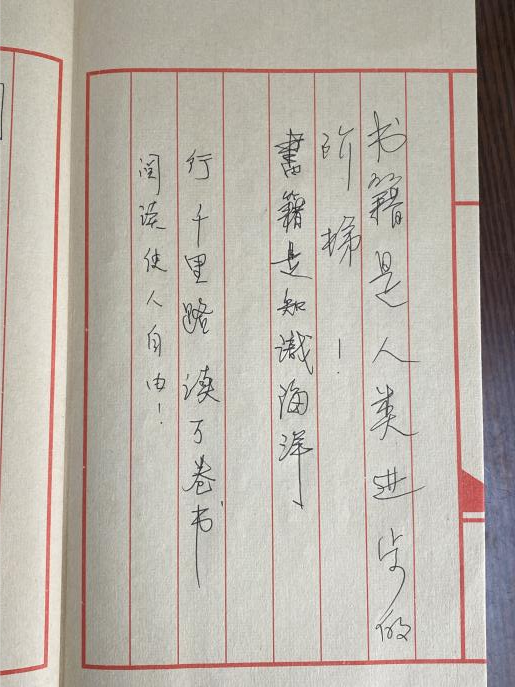 书籍是人类进步的
阶梯！
書籍是知識海洋
行千里路读万卷书
阅读使人自由！